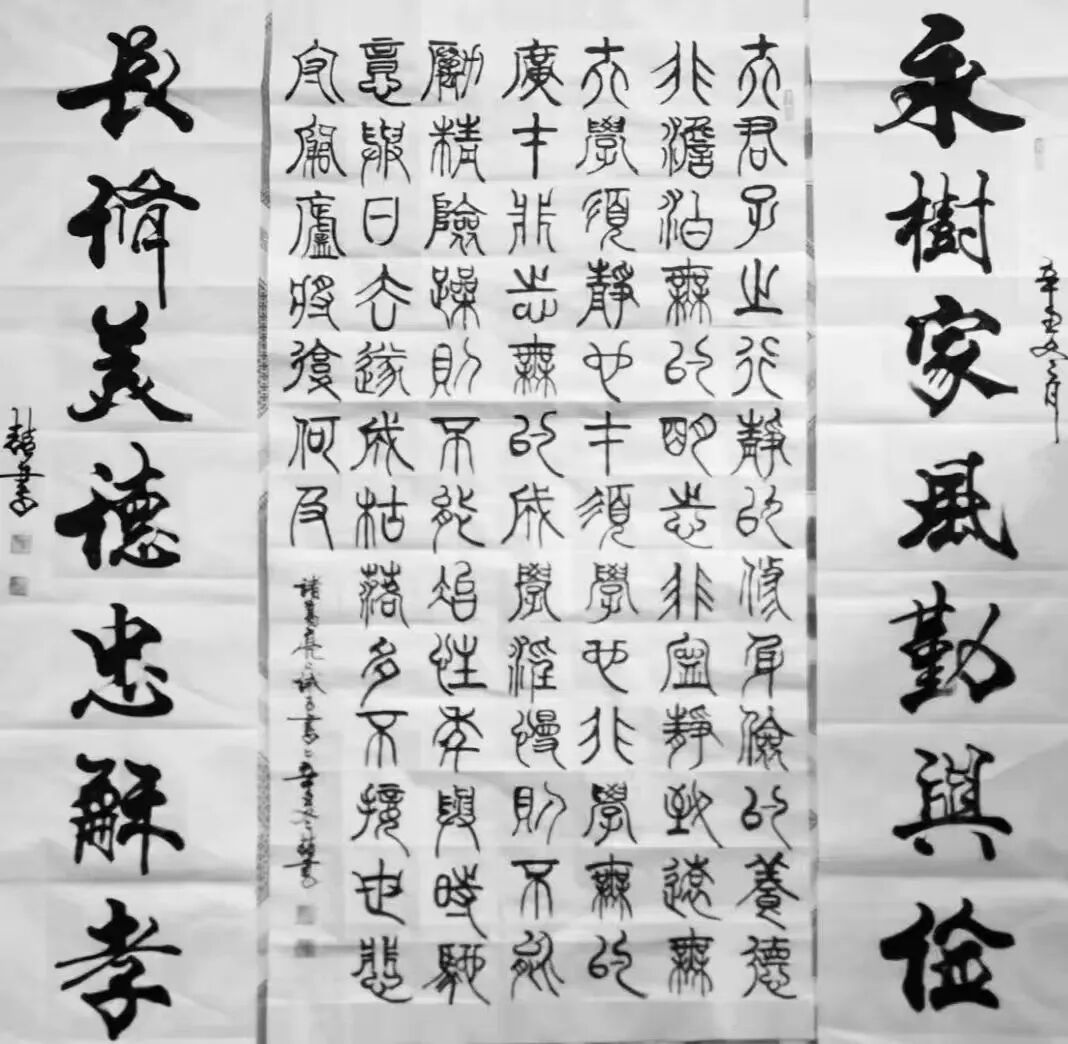 永樹家風勤與儉
辛丑冬月
夫君子之行靜以修身儉以養德
非澹泊無以明志非寧靜致遠無
夫學須靜也才須學也非學無以
廣才非志無以成學淫慢則不能
勵精險躁則不能治性年與時馳
意與日去遂成枯落多不接世悲
守窮廬將復何及
諸葛亮誡子書辛丑冬書
長脩美德忠龢孝
書